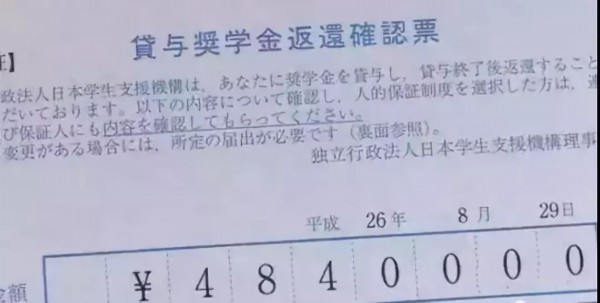 貸与奨学金返還確認票
証】
政法人日本学生支援機構は、あなたに奨学金を貸与し、貸与終了後返還すること
だいております。以下の内容について確認し、人的保証制度を選択した方は、連
び保証人にも内容を確認してもらってください。
変更がある場合には、所定の届出が必要です（裏面参照）。
独立行政法人日本学生支援機構理事
平成 26年 8月 29日
金額 ¥4840000